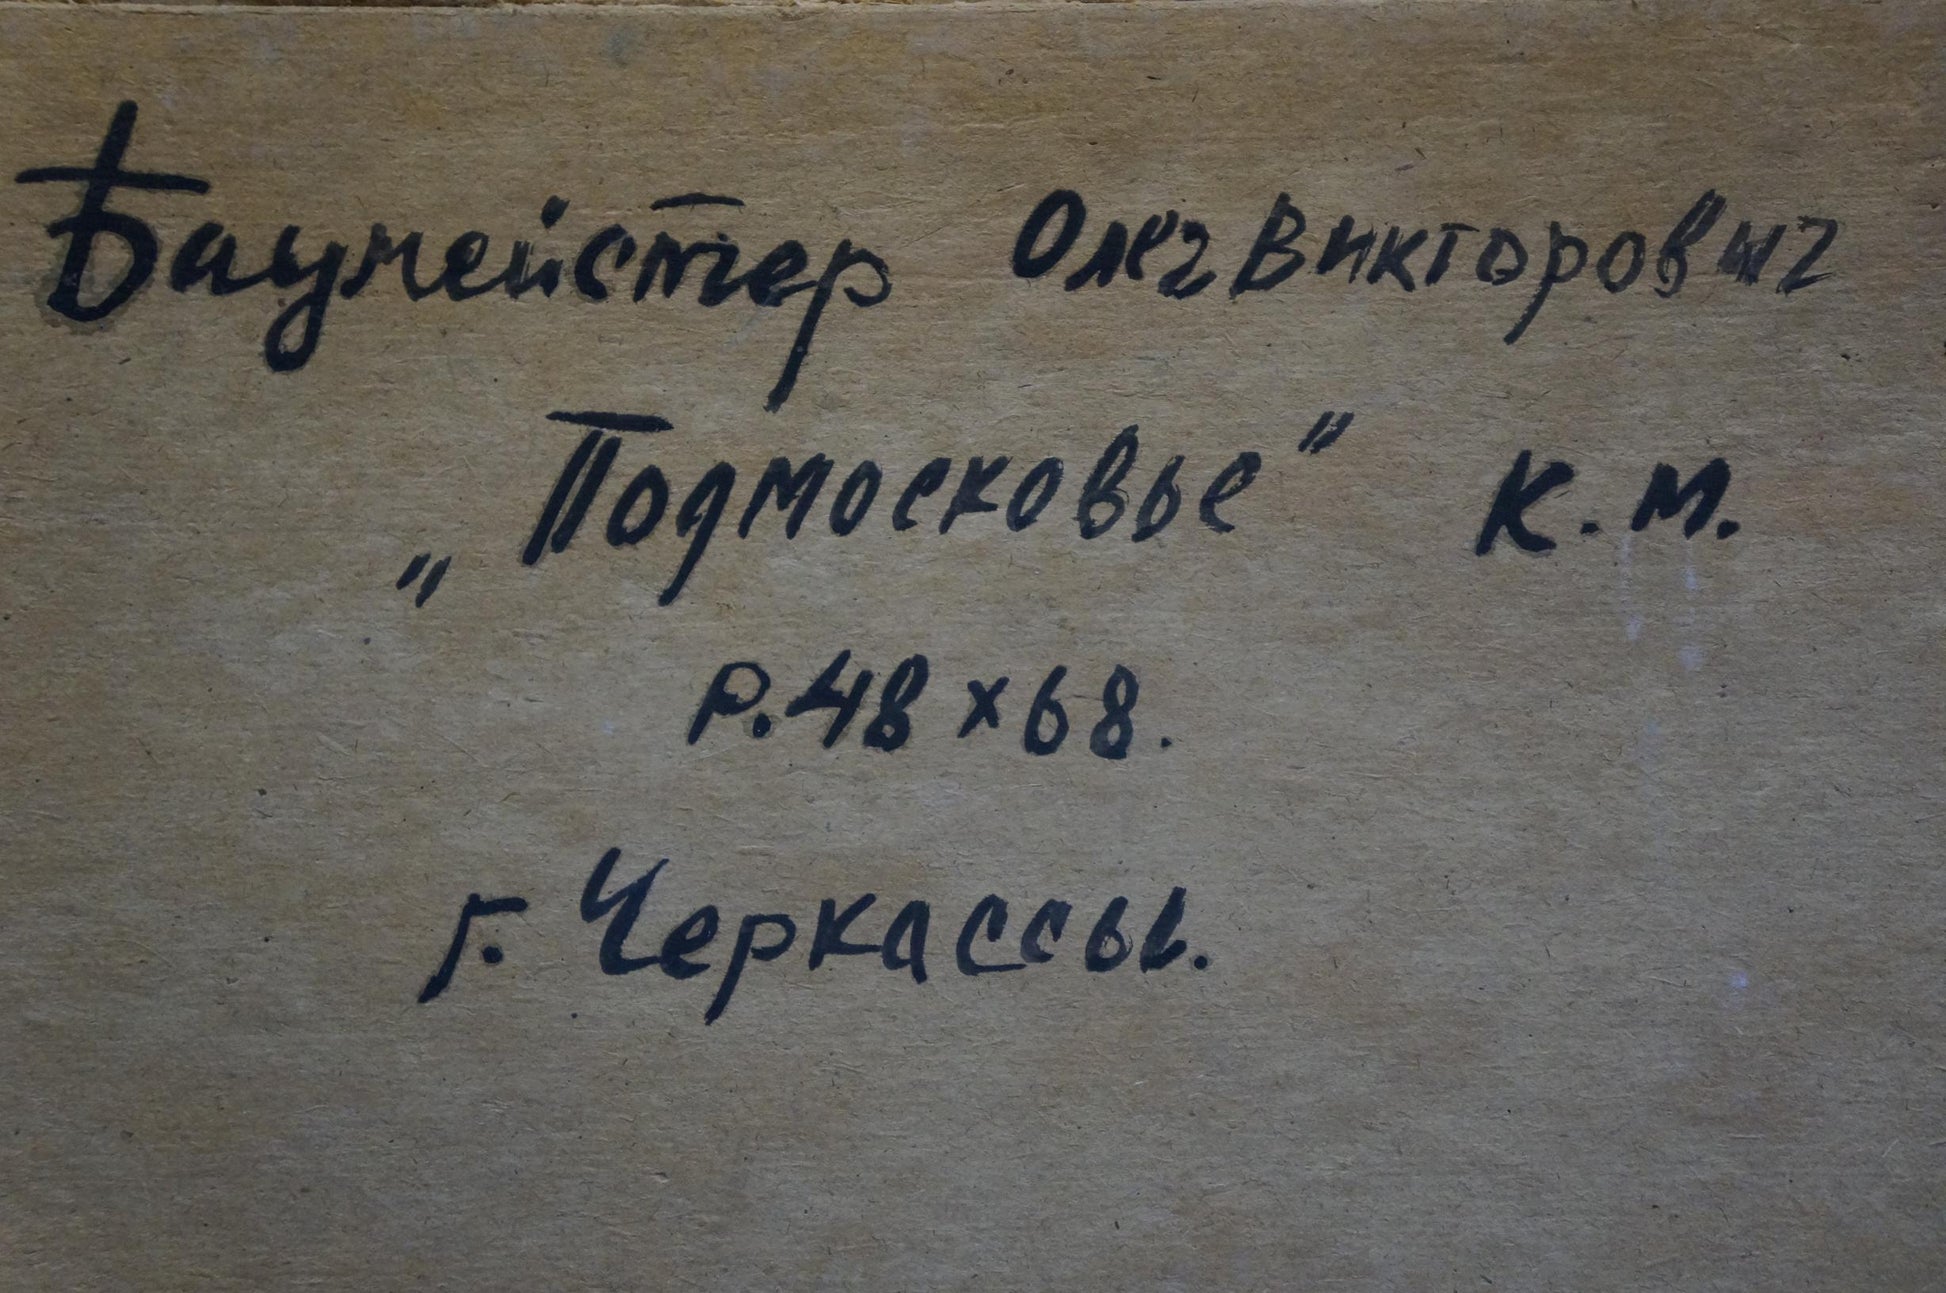 Баумейстер Олег Викторович
„Подмосковье" к.м.
р.48×68.
г. Черкассы.